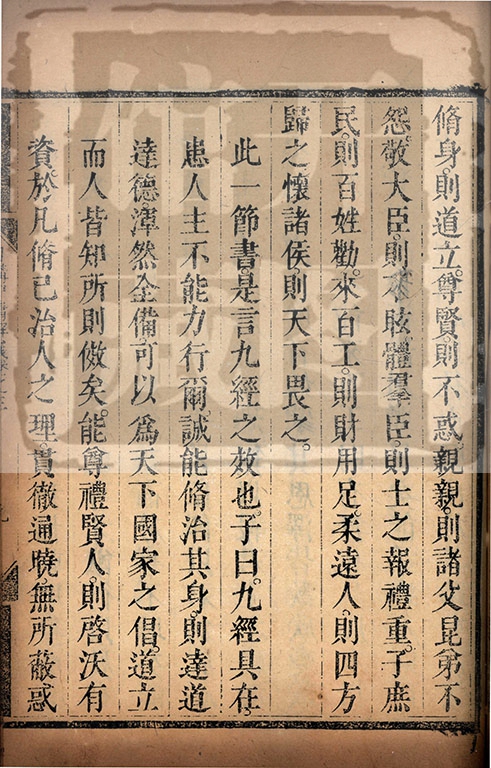 脩身則道立。尊賢則不惑。親親則諸父昆弟不
怨。敬大臣則不眩。體羣臣則士之報禮重。子庶
民則百姓勸。來百工。則財用足。柔遠人。則四方
歸之。懷諸侯。則天下畏之。
此一節書。是言九經之效也。子曰。九經具在。
患人主不能力行爾。誠能脩治其身。則達道
達德渾然全備。可以為天下國家之倡。道立
而人皆知所則傚矣。能尊禮賢人。則啓沃有
資。於凡脩己治人之理。貫徹通曉。無所蔽惑